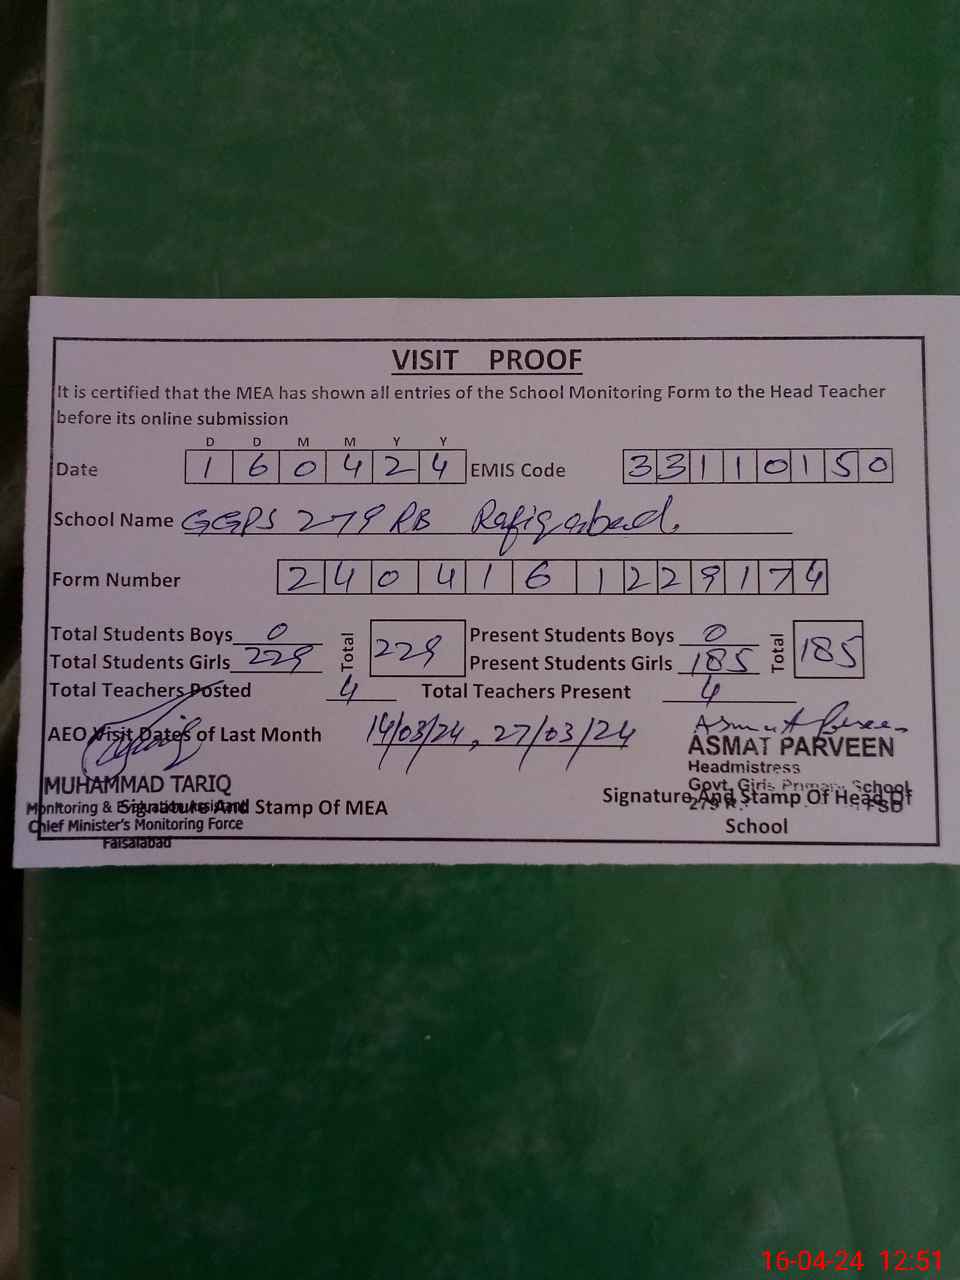 VISIT PROOF
It is certified that the MEA has shown all entries of the School Monitoring Form to the Head Teacher
before its online submission
D D M M Y Y
Date 1 6 0 4 2 4 EMIS Code 3 3 1 1 0 1 5 0
School Name GGPS 279 RB Rafiqabad.
Form Number 2 4 0 4 1 6 1 2 2 9 1 7 4
Total Students Boys 0 Total 229 Present Students Boys 0 Total 185
Total Students Girls 229 Present Students Girls 185
Total Teachers Posted 4 Total Teachers Present 4
AEO Visit Dates of Last Month 14/03/24, 27/03/24 Asmat Parveen
ASMAT PARVEEN
Headmistress
Govt. Girls Primary School
279 R. FSD
MUHAMMAD TARIQ
Monitoring & Evaluation Assistant
Chief Minister's Monitoring Force
Faisalabad
Signature And Stamp Of MEA
Signature And Stamp Of Head Of
School
16-04-24 12:51